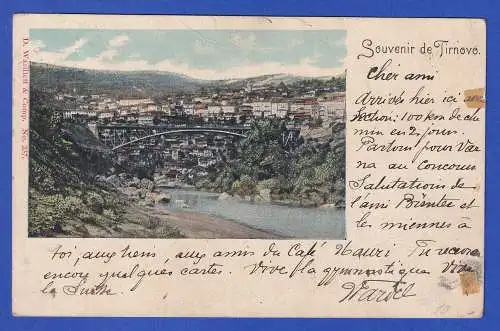 D. Wladicff & Comp. No. 257.
Souvenir de Tirnovo.
Cher ami
Arrivés hier ici avec
section: 100 km de che
min en 2 jours.
Partons pour Var
na au Concours
Salutations de
l'ami Bünter et
les miennes à
toi, aux tiens, aux amis du Café Hauri Tu recevras
encore quelques cartes. Vive la gymnastique Vive
la Suisse